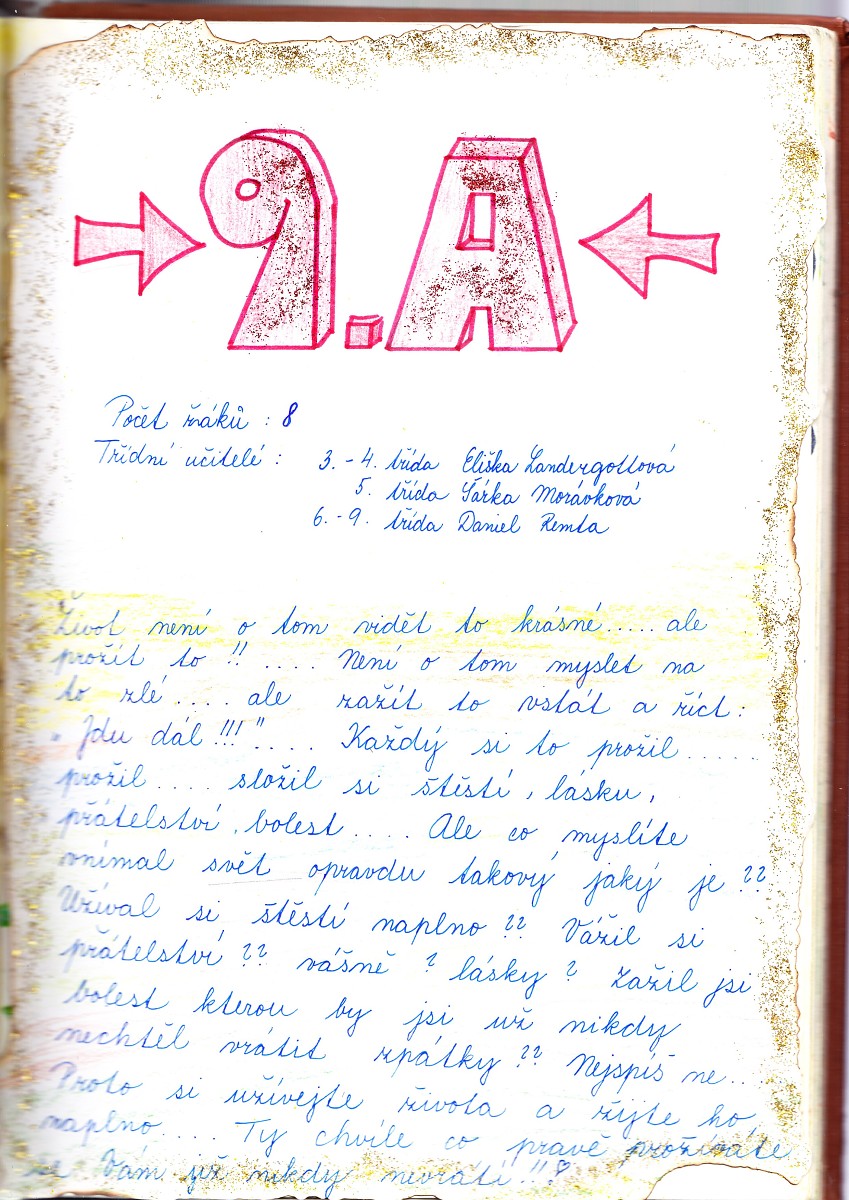 9.A
Počet žáků : 8
Třídní učitelé : 3. - 4. třída Eliška Landergottová
5. třída Šárka Morávková
6. - 9. třída Daniel Remta
Život není o tom vidět to krásné..... ale
prožít to !! .... Není o tom myslet na
to zlé .... ale zažít to vstát a říct :
"Jdu dál !!!".... Každý si to prožil .....
prožil .... složil si štěstí , lásku ,
přátelství , bolest .... Ale co myslíte
vnímal svět opravdu takový jaký je ??
Užíval si štěstí naplno ?? Vážil si
přátelství ?? vášně ? lásky ? Zažil jsi
bolest kterou by jsi už nikdy
nechtěl vrátit zpátky ?? Nejspíš ne...
Proto si užívejte života a žijte ho
naplno.... Ty chvíle co pravě prožíváte
se Vám již nikdy nevrátí !!!